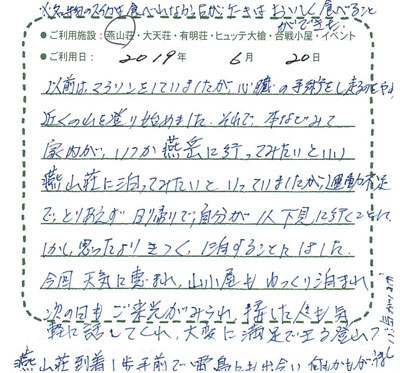 ※名物のスイカは食べれなかったがケーキはおいしく食べること
ができた。
●ご利用施設：燕山荘・大天荘・有明荘・ヒュッテ大槍・合戦小屋・イベント
●ご利用日： 2019年 6月 20日
以前はマラソンをしていましたが、心臓の手術をし走るのをやめ
近くの山を登り始めました。それで、本などみて
家内が、いつか燕岳に行ってみたいといい
燕山荘に泊ってみたいといっていましたが、運動不足
でとりあえず日帰りで自分が1人下見に行くことに、
しかし思ったよりきつく、1泊することにしました。
今回、天気に恵まれ、山小屋もゆっくり泊まれ、
次の日もご来光がみられ、接した人も気
軽に話してくれ、大変に満足できる登山で
燕山荘到着1歩手前で雷鳥にも出会い 何もかもが